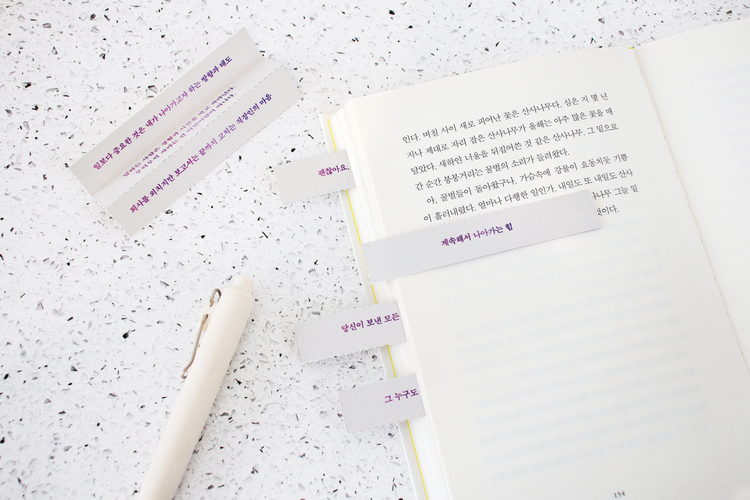 일보다 중요한 것은 내가 나아가고자 하는 방향과 태도
회사를 의지만 보고서는 끝까지 고치는 직장인의 마음
괜찮아요.
인다. 며칠 사이 새로 피어난 꽃은 산사나무다. 심은 지 몇 년
지나 제대로 자리 잡은 산사나무가 올해는 아주 많은 꽃을 매
달았다. 새하얀 너울을 뒤집어쓴 것 같은 산사나무. 그 밑으로
간 순간 붕붕거리는 꿀벌의 소리가 들려왔다.
아, 꿀벌들이 돌아왔구나. 가슴속에 강물이 요동치듯 기쁨
이 흘러내렸다. 얼마나 다행한 일인가. 내일도 또 내일도 산사
나무 그늘 밑
것이다.
계속해서 나아가는 힘
당신이 보낸 모든
그 누구도
194